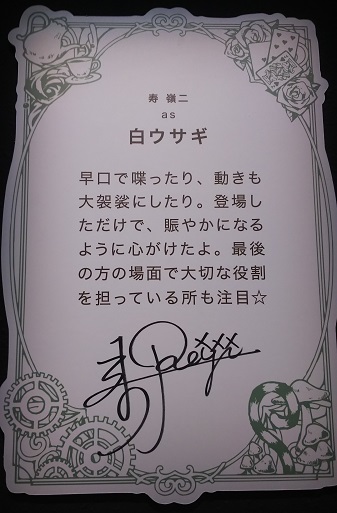 寿 嶺二
as
白ウサギ
早口で喋ったり、動きも
大袈裟にしたり。登場し
ただけで、賑やかになる
ように心がけたよ。最後
の方の場面で大切な役割
を担っている所も注目☆
寿 Reiji